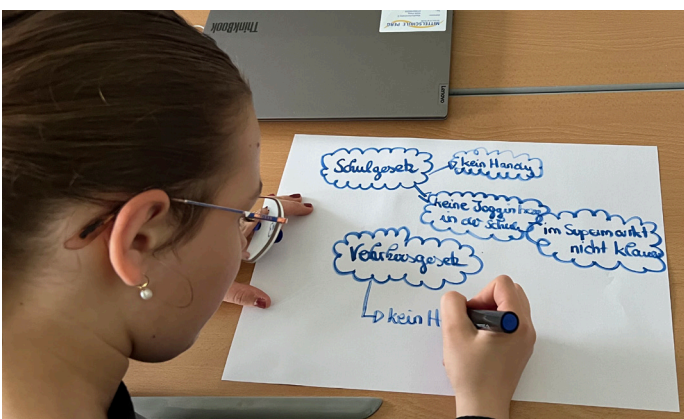 ThinkBook
MITTELSCHULE PERG
Lenovo
Schulgesetz
kein Handy
keine Jogginhog
in der Schule
im Supermarkt
nicht klauen
Verkehrsgesetz
kein H